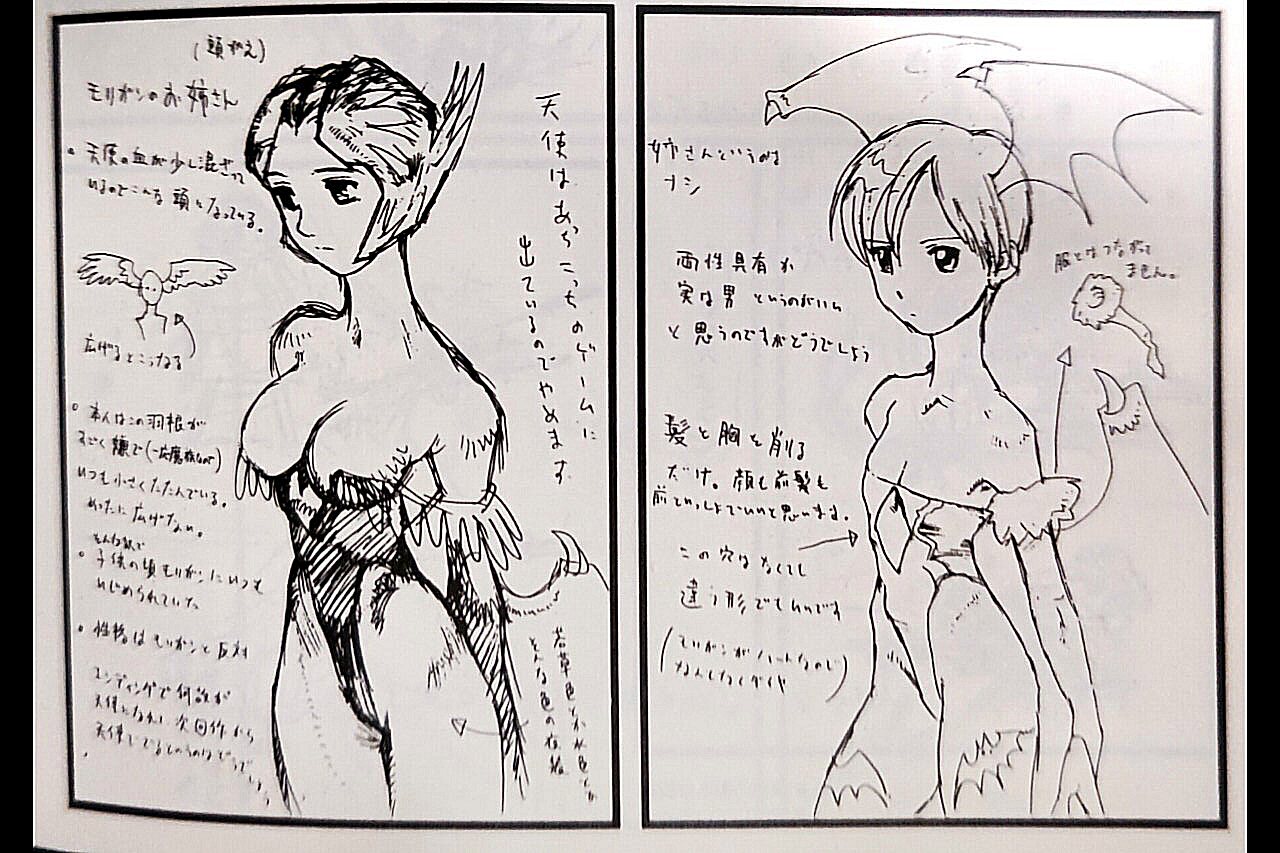 (頭がえ)
モリガンのお姉さん
• 天使の血が少し混ざって
いるのでこんな頭になっている。
広げるとこうなる
• 本人はこの羽根が
すごく嫌で(一応魔族なので)
いつも小さくたたんでいる。
めったに広げない。
そんな訳で
• 子供の頃モリガンにいつも
いじめられていた
• 性格はモリガンと反対
エンディングで何故か
天使になれ 次回作から
天使ででるというのはどうでしょう
天使はあちこちのゲームに
出ているのでやめます
若草色とか水色とか
そんな色の夜
姉さんというのは
ナシ
両性具有か
実は男 というのがいい
と思うのですがどうでしょう
服とはつながって
ません。
髪と胸を削る
だけ。顔も前髪も
前といっしょでいいと思います。
この穴はなくても
違う形でもいいです
(モリガンがハートなので)
なんとなくダイヤ